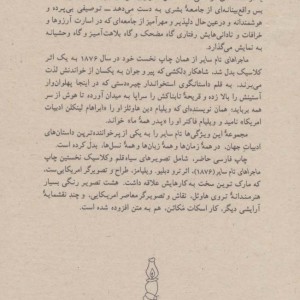 بس واقع‌بینانه‌ای از جامعهٔ بشری به دست می‌دهد ـ توصیفی بی‌پرده و
هوشمندانه و درعین‌حال دلپذیر و مهرآمیز از جامعه‌ای که در اسارت آرزوها و
خرافات و نادانی‌هایش رفتاری گاه مضحک و گاه بلاهت‌آمیز و گاه وحشیانه
به نمایش می‌گذارد.
ماجراهای تام سایر از همان چاپ نخست خود در سال ۱۸۷۶ به یک اثر
کلاسیک بدل شد، شاهکار دلکشی که پیر و جوان به یکسان از خواندنش لذت
می‌برند، به قلم داستانگوی استخواندار چیره‌دستی که در اینجا پهلوان‌وار
آستینش را بالا زده و قریحهٔ تابناکش را سراپا به میدان آورده تا هوش از سر
همه برباید؛ همان نویسنده‌ای که ویلیام دین هاولز او را «ابراهام لینکلن ادبیات
امریکا» نامید و ویلیام فاکنر او را «پدر همهٔ ما» خواند.
مجموعهٔ این ویژگی‌ها تام سایر را به یکی از پرخواننده‌ترین داستان‌های
ادبیات جهان، در همهٔ زمان‌ها و زبان‌ها و همهٔ نسل‌ها، بدل کرده است.
چاپ فارسی حاضر، شامل تصویرهای سیاه‌قلم و کلاسیک نخستین چاپ
ماجراهای تام سایر (۱۸۷۶)، اثر ترو دبلیو. ویلیامز، طراح و تصویرگر امریکایی‌ست،
که مارک تواین سخت به کارهایش علاقه داشت. هشت تصویر رنگی بسیار
هنرمندانهٔ تروی هاوئل، نقاش و تصویرگر معاصر امریکایی، و چند نقشمایهٔ
آرایشی دیگر، کار اسکات مک‌کائن، هم به متن افزوده شده است.